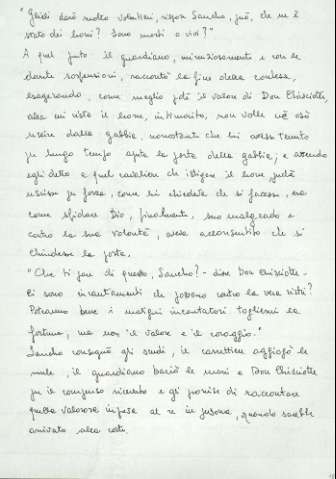 "Glieli darò molto volentieri, signor Sancho, ma, che ne è
stato dei leoni? Sono morti o vivi?"
A quel punto il guardiano, minuziosamente e con le
dovute sospensioni, raccontò la fine della contesa,
esagerando, come meglio poté il valore di Don Chisciotte
alla cui vista il leone, intimorito, non volle né osò
uscire dalla gabbia, nonostante che lui avesse tenuto
per lungo tempo aperta la porta della gabbia; e avendo
egli detto a quel cavaliere che istigare il leone perché
uscisse per forza, come lui chiedeva che si facesse, era
come sfidare Dio, finalmente, suo malgrado e
contro la sua volontà, aveva acconsentito che si
chiudesse la porta.
"Che ti pare di questo, Sancho? - disse Don Chisciotte -
Ci sono incantamenti che possano contro la vera virtù?
Potranno bene i maghi incantatori togliermi la
fortuna, ma non il valore e il coraggio."
Sancho consegnò gli scudi, il carrettiere aggiogò le
mule, il guardiano baciò le mani a Don Chisciotte
per il compenso ricevuto e gli promise di raccontare
quella valorosa impresa al re in persona, quando sarebbe
arrivato alla corte.